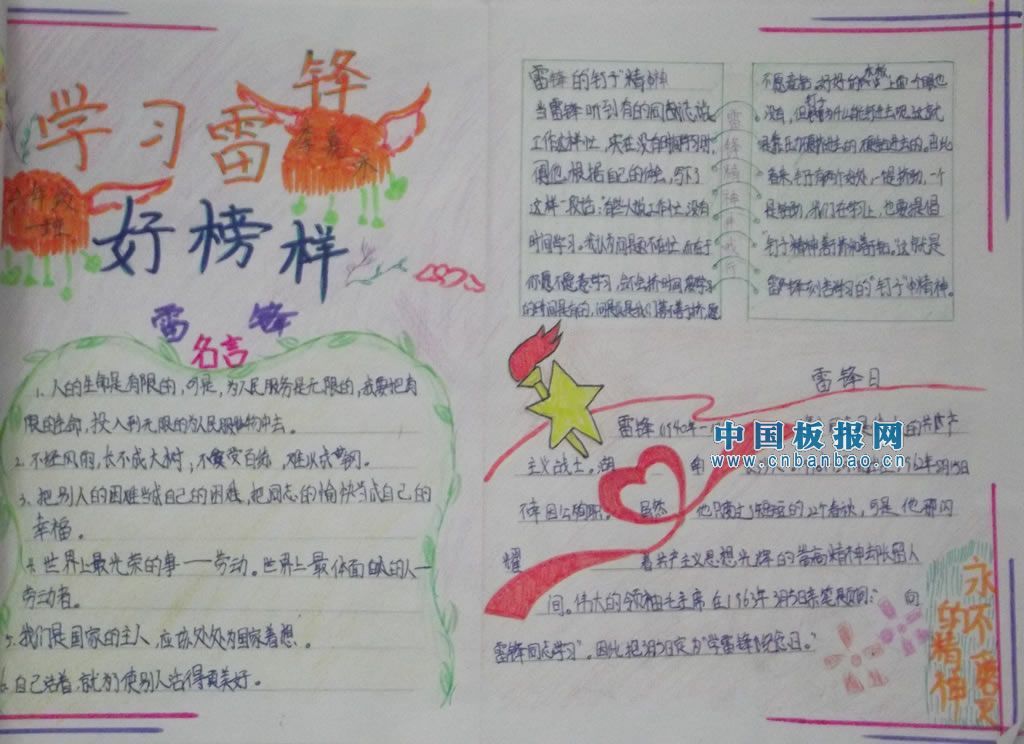 学习雷锋
好榜样
雷锋
名言
1、人的生命是有限的，可是，为人民服务是无限的，我要把有
限的生命，投入到无限的为人民服务中去。
2、不经风雨，长不成大树，不受百练，难以成钢。
3、把别人的困难当成自己的困难，把同志的愉快当成自己的
幸福。
4、世界上最光荣的事——劳动。世界上最体面的人—
劳动者。
5、我们是国家的主人，应该处处为国家着想。
6、自己活着，就是为了使别人活得更美好。
雷锋的"钉子"精神
当雷锋听到有的同志说
工作这样忙，实在没有时间学习时，
便根据自己的体会，写下
这样一段话：有些人说工作忙，没有
时间学习。我认为问题不在忙，而在于
你愿不愿意学习，会不会挤时间。学习
的时间是有的，问题是我们善不善于挤，愿
不愿意钻。好好的木板，上面一个眼也
没有，但钉子为什么能钉进去呢？这就
是靠压力硬挤进去的，硬钻进去的。由此
看来，钉子有两个好处，一是挤劲，一个
是钻劲。我们在学习上，也要提倡
"钉子"精神，善于挤和善于钻。这就是
雷锋刻苦学习的"钉子"精神。
雷锋日
雷锋1940年
共产
主义战士。湖
1962年8月15日
不幸因公殉职。虽然他只度过了短短的22个春秋，可是他那闪
耀着共产主义思想光辉的崇高精神却永留人
间。伟大的领袖毛主席在1963年3月5日亲笔题词："向
雷锋同志学习"。因此把3月5日定为"学雷锋纪念日。"
中国板报网
www.cnbanbao.cn
永不磨灭
的精神